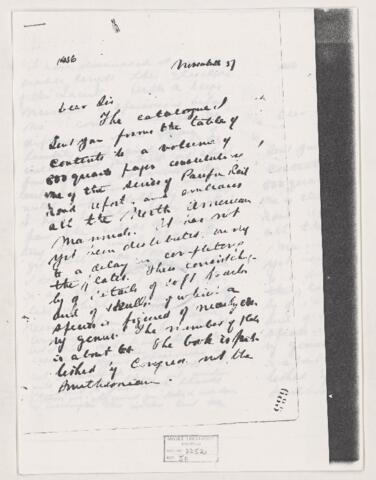 1856
Dear Sir
The catalogue I
sent you forms the table of
contents to a volume of
800 quarto pages constitutes
one of the series of Pacific Rail
Road report, and embraces
all the North American
Mammals. It has not
yet been distributed owing
to a delay in completing
the plates. These consisting
of details of soft parts
and of skulls, of which a
species is figured of nearly eve
ry genus. The number of plates
is about 60. The book is pub
lished by Congress not the
Smithsonian.
2252